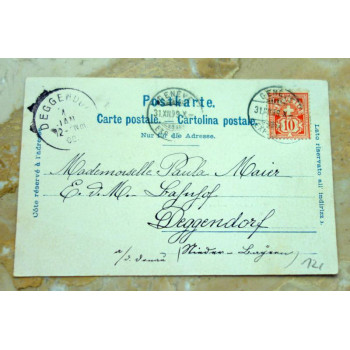 Postkarte.
Carte postale. Cartolina postale.
Nur für die Adresse.
Côté réservé à l'adresse.
Lato riservato all'indirizzo.
DEGGENDORF
1
JAN
GENÈVE
31.XII.99
GENÈVE
31.XII
10
Mademoiselle Paula Maier
E. d. M. Bahnhof
Deggendorf
a/d. Donau (Nieder-Bayern)